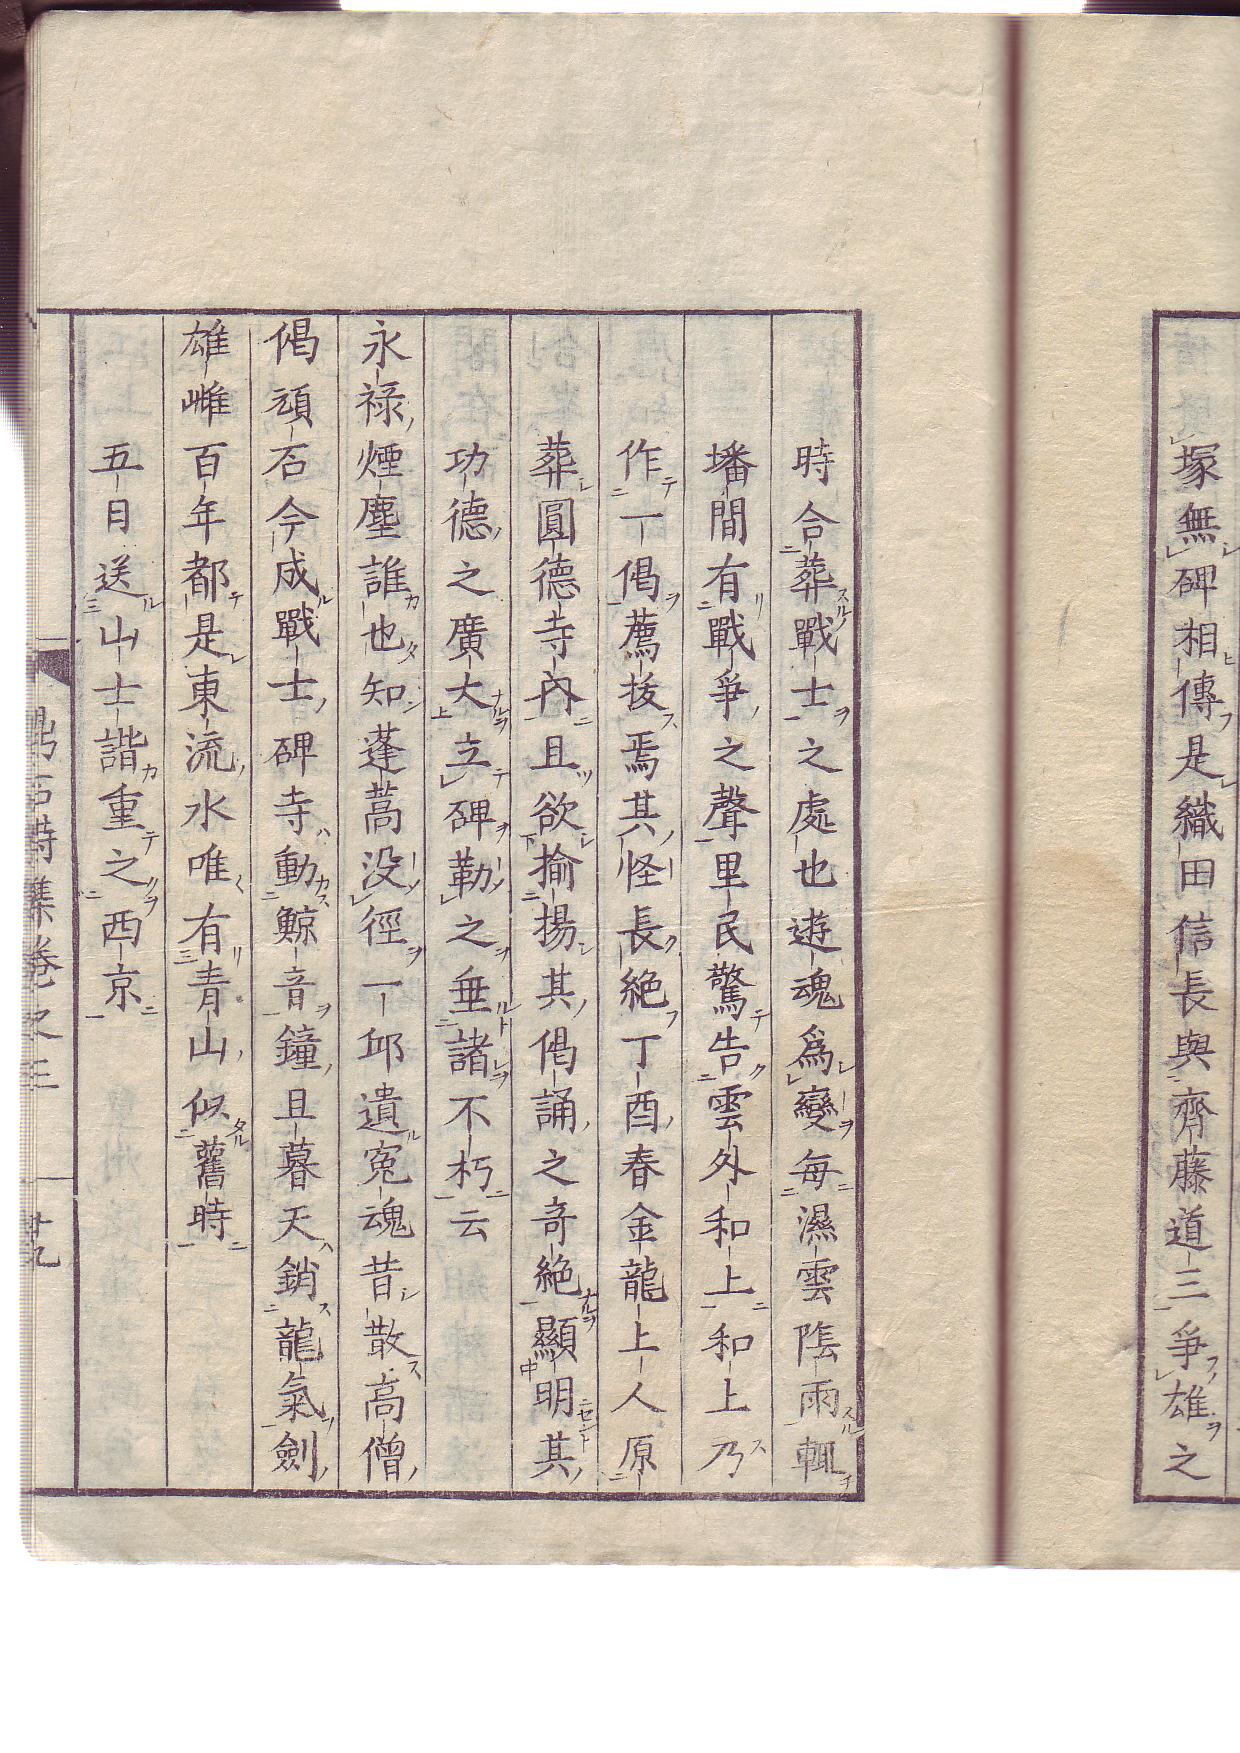 塚無碑相傳是織田信長與齊藤道三爭雄之
時合葬戰士之處也遊魂爲變每濕雲陰雨輒
墦間有戰爭之聲里民驚告雲外和上和上乃
作一偈薦拔焉其怪長絶丁酉春金龍上人原
葬圓德寺內且欲揄揚其偈誦之奇絶顯明其
功德之廣大立碑勒之垂諸不朽云
永禄煙塵誰也知蓬蒿没徑一邱遺寃魂昔散高僧
偈頑石今成戰士碑寺動鯨音鐘且暮天銷龍氣劍
雄雌百年都是東流水唯有青山似舊時
五日送山士諧重之西京
石詩集卷之三 廿九